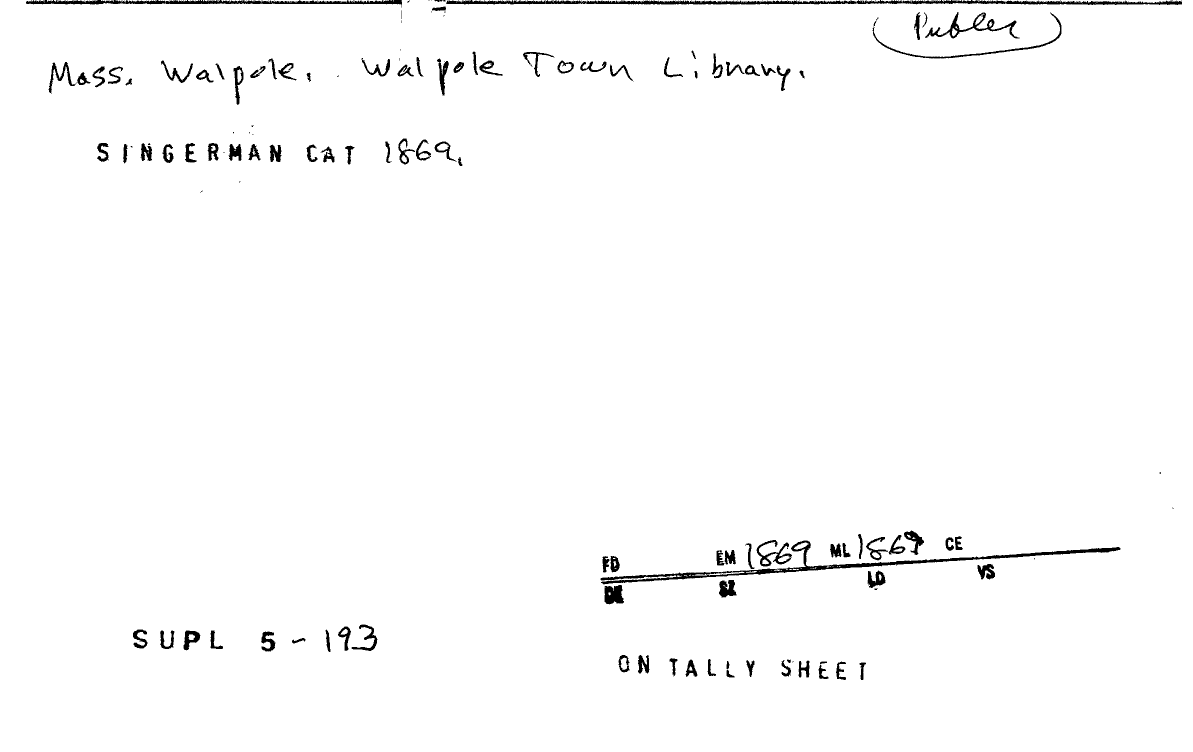 Mass. Walpole. Walpole Town Library.
SINGERMAN CAT 1869.
FD EM 1869 ML 1869 CE
SZ LD VS
SUPL 5-193
ON TALLY SHEET